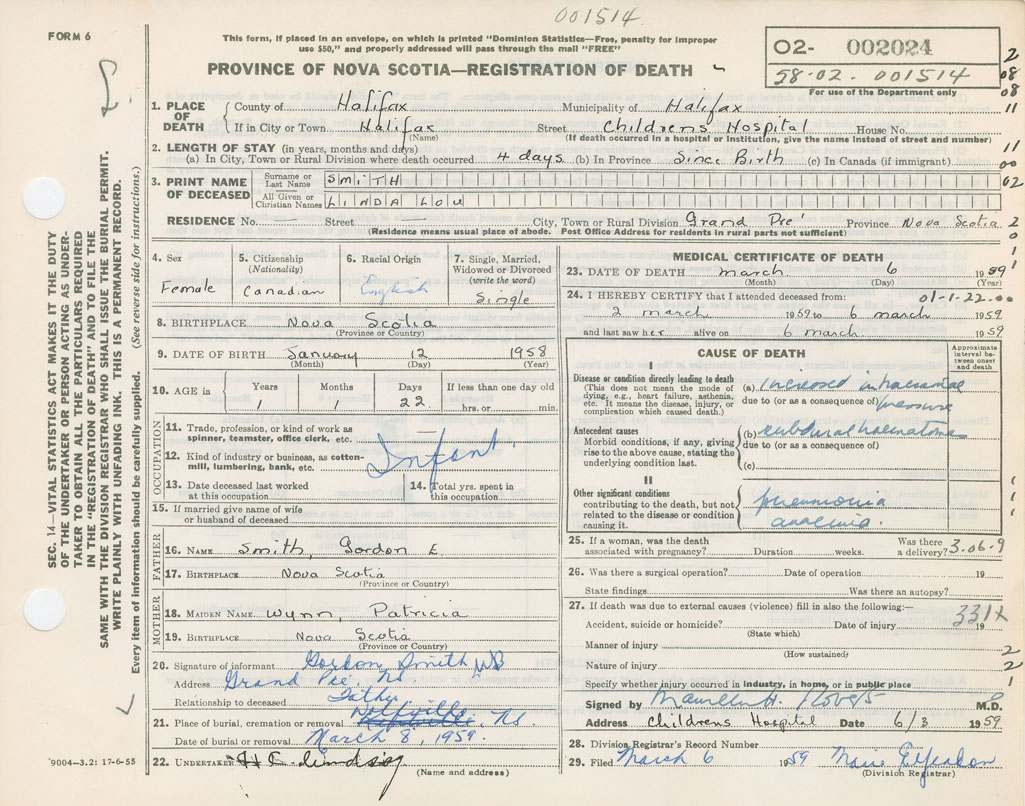 001514
FORM 6
This form, if placed in an envelope, on which is printed "Dominion Statistics—Free, penalty for improper
use $50," and properly addressed will pass through the mail "FREE"
PROVINCE OF NOVA SCOTIA—REGISTRATION OF DEATH
02- 002024
58-02. 001514
For use of the Department only
2
08
08
11
11
00
02
2
0
1
1
SEC. 14—VITAL STATISTICS ACT MAKES IT THE DUTY
OF THE UNDERTAKER OR PERSON ACTING AS UNDER-
TAKER TO OBTAIN ALL THE PARTICULARS REQUIRED
IN THE "REGISTRATION OF DEATH" AND TO FILE THE
SAME WITH THE DIVISION REGISTRAR WHO SHALL ISSUE THE BURIAL PERMIT.
WRITE PLAINLY WITH UNFADING INK. THIS IS A PERMANENT RECORD.
Every item of information should be carefully supplied. (See reverse side for instructions.)
1. PLACE OF DEATH
County of Halifax Municipality of Halifax
If in City or Town Halifax Street Childrens Hospital House No.
(Name) (If death occurred in a hospital or institution, give the name instead of street and number)
2. LENGTH OF STAY (in years, months and days)
(a) In City, Town or Rural Division where death occurred 4 days (b) In Province Since Birth (c) In Canada (if immigrant)
3. PRINT NAME OF DECEASED
Surname or Last Name SMITH
All Given or Christian Names LINDA LOU
RESIDENCE No. — Street — City, Town or Rural Division Grand Pre' Province Nova Scotia
(Residence means usual place of abode. Post Office Address for residents in rural parts not sufficient)
4. Sex
Female
5. Citizenship
(Nationality)
Canadian
6. Racial Origin
English
7. Single, Married,
Widowed or Divorced
(write the word)
Single
8. BIRTHPLACE Nova Scotia
(Province or Country)
9. DATE OF BIRTH January 12 1958
(Month) (Day) (Year)
10. AGE in
Years Months Days If less than one day old
1 1 22 hrs. or min.
OCCUPATION
11. Trade, profession, or kind of work as
spinner, teamster, office clerk, etc.
Infant.
12. Kind of industry or business, as cotton-
mill, lumbering, bank, etc.
13. Date deceased last worked
at this occupation
14. Total yrs. spent in
this occupation
15. If married give name of wife
or husband of deceased
FATHER
16. NAME Smith, Gordon E.
17. BIRTHPLACE Nova Scotia
(Province or Country)
MOTHER
18. MAIDEN NAME Wynn, Patricia
19. BIRTHPLACE Nova Scotia
(Province or Country)
20. Signature of informant Gordon Smith
Address Grand Pré, NS.
Relationship to deceased Father
Wolfville
21. Place of burial, cremation or removal NS
Date of burial or removal March 8, 1959.
22. UNDERTAKER
(Name and address)
9004-3.2: 17-6-55
MEDICAL CERTIFICATE OF DEATH
23. DATE OF DEATH march 6 1959
(Month) (Day) (Year)
24. I HEREBY CERTIFY that I attended deceased from: 01-1-22.00
2 march 1959 to 6 march 1959
and last saw her alive on 6 march 1959
CAUSE OF DEATH
Approximate
interval be-
tween onset
and death
I
Disease or condition directly leading to death
(This does not mean the mode of
dying, e.g., heart failure, asthenia,
etc. It means the disease, injury, or
complication which caused death.)
(a) increased intracranial
due to (or as a consequence of) pressure
Antecedent causes
Morbid conditions, if any, giving
rise to the above cause, stating the
underlying condition last.
(b) subdural haematoma
due to (or as a consequence of)
(c)
II
Other significant conditions
contributing to the death, but not
related to the disease or condition
causing it.
pneumonia
anaemia.
1
1
1
25. If a woman, was the death
associated with pregnancy? Duration weeks. Was there
a delivery? 3-06-9
26. Was there a surgical operation? Date of operation 19
State findings Was there an autopsy?
27. If death was due to external causes (violence) fill in also the following:—
331X
Accident, suicide or homicide? Date of injury 19
(State which)
Manner of injury 2
(How sustained)
Nature of injury 2
Specify whether injury occurred in industry, in home, or in public place 1
Signed by M.D.
Address Childrens Hospital Date 6/3 1959
28. Division Registrar's Record Number
29. Filed March 6 1959
(Division Registrar)